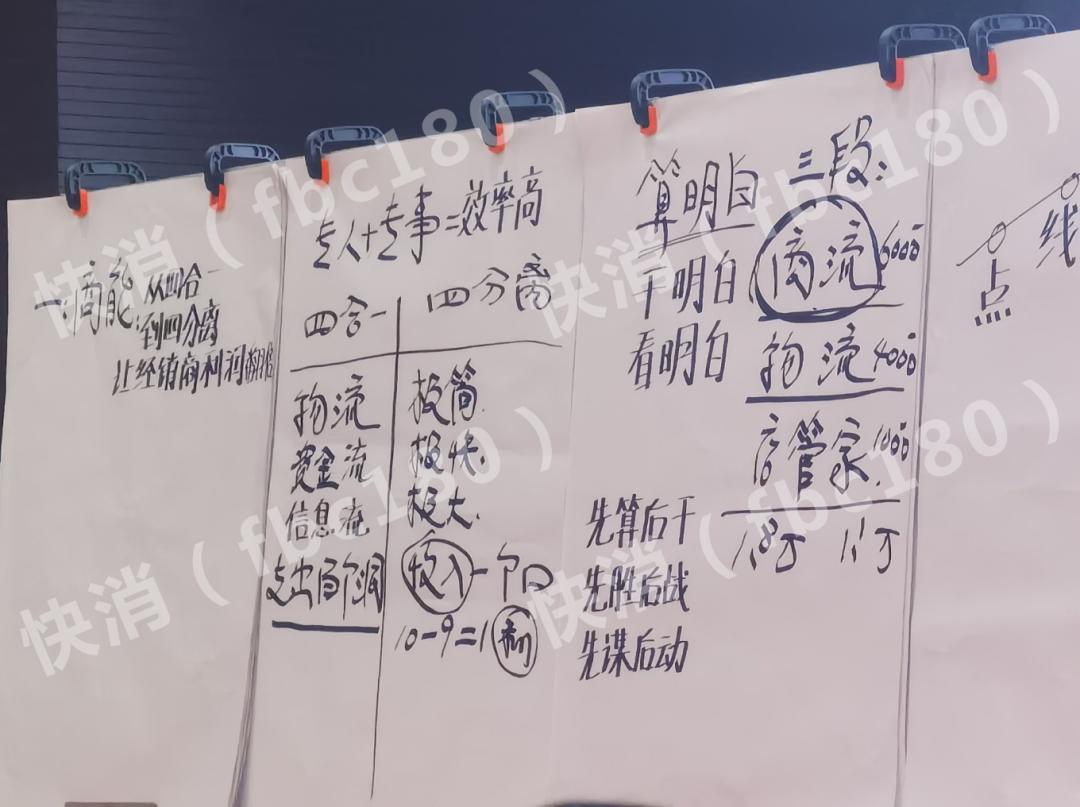 一:商能:从四合一
到四分离
让经销商利润翻倍
专人+专事=效率高
四合一 四分离
物流 极简.
资金流 极快.
信息流 极大.
支出多个洞 收入一个口
10-9=1利
算明白
干明白
看明白
先算后干
先胜后战
先谋后动
三段:
商流 6000
物流 4000
店管家. 1000
1.8万 1.1万
点 线
快消(fbc180)
快消(fbc180)
快消(fbc180)
快消(fbc180)